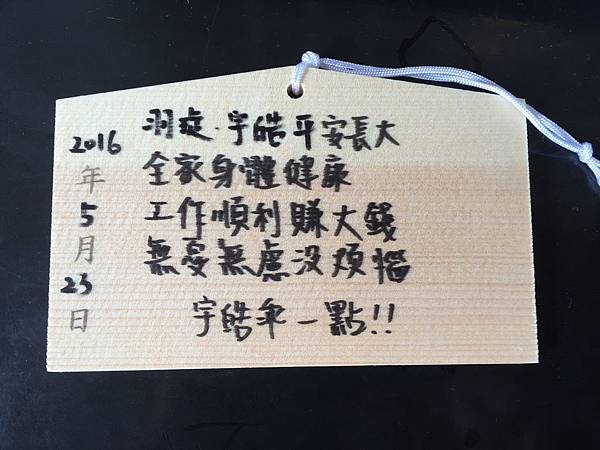 2016年5月23日
羽·宇皓平安長大
全家身體健康
工作順利賺大錢
無憂無慮沒煩惱
宇皓乖一點!!